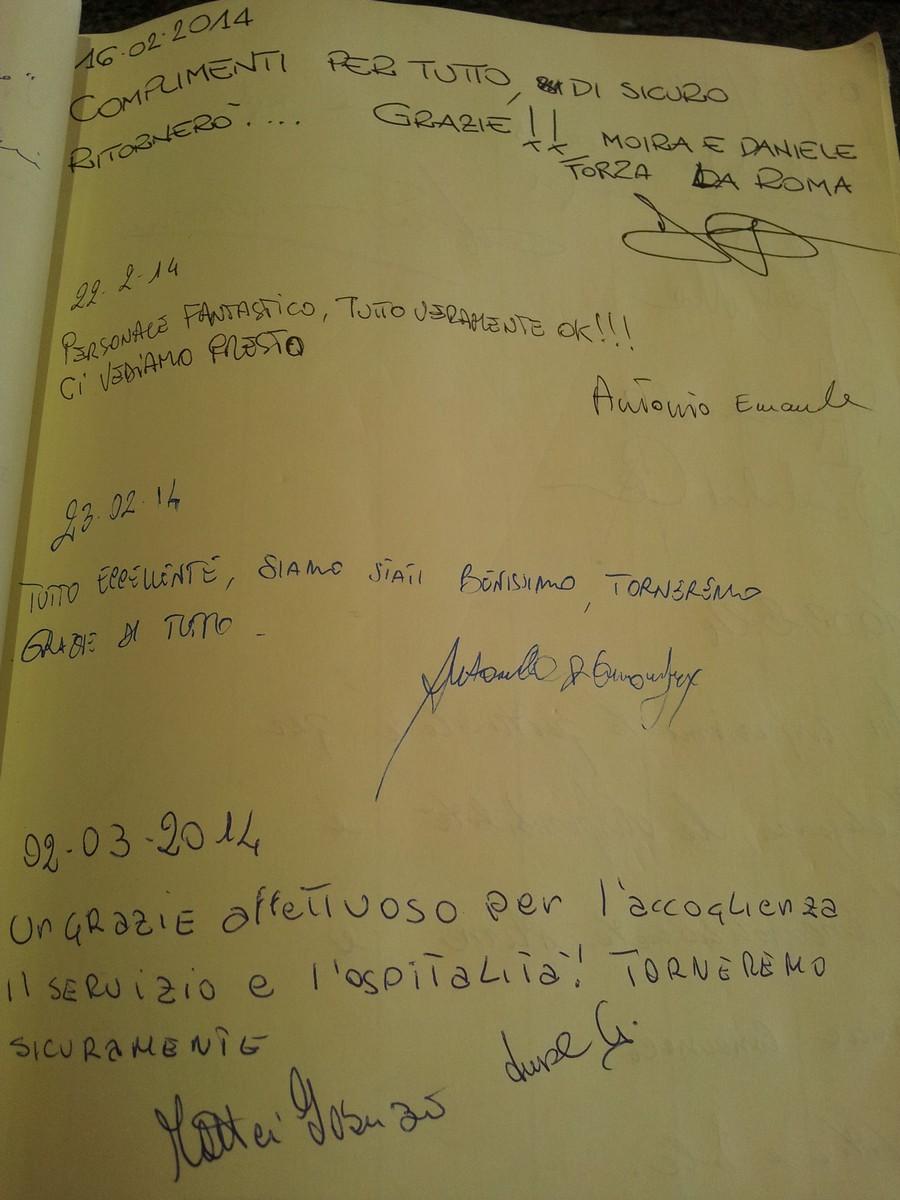 16.02.2014
COMPLIMENTI PER TUTTO, DI SICURO
RITORNERÒ.... GRAZIE!! MOIRA E DANIELE
TORZA DA ROMA
22-2-14
PERSONALE FANTASTICO, TUTTO VERAMENTE OK!!!
CI VEDIAMO PRESTO
Antonio Emanuele
23.02.14
TUTTO ECCELLENTE, SIAMO STATI BENISSIMO, TORNEREMO
GRAZIE DI TUTTO -
02-03-2014
un GRAZIE affettuoso per l'accoglienza
il servizio e l'ospitalità! TORNEREMO
SICURAMENTE
Mattei